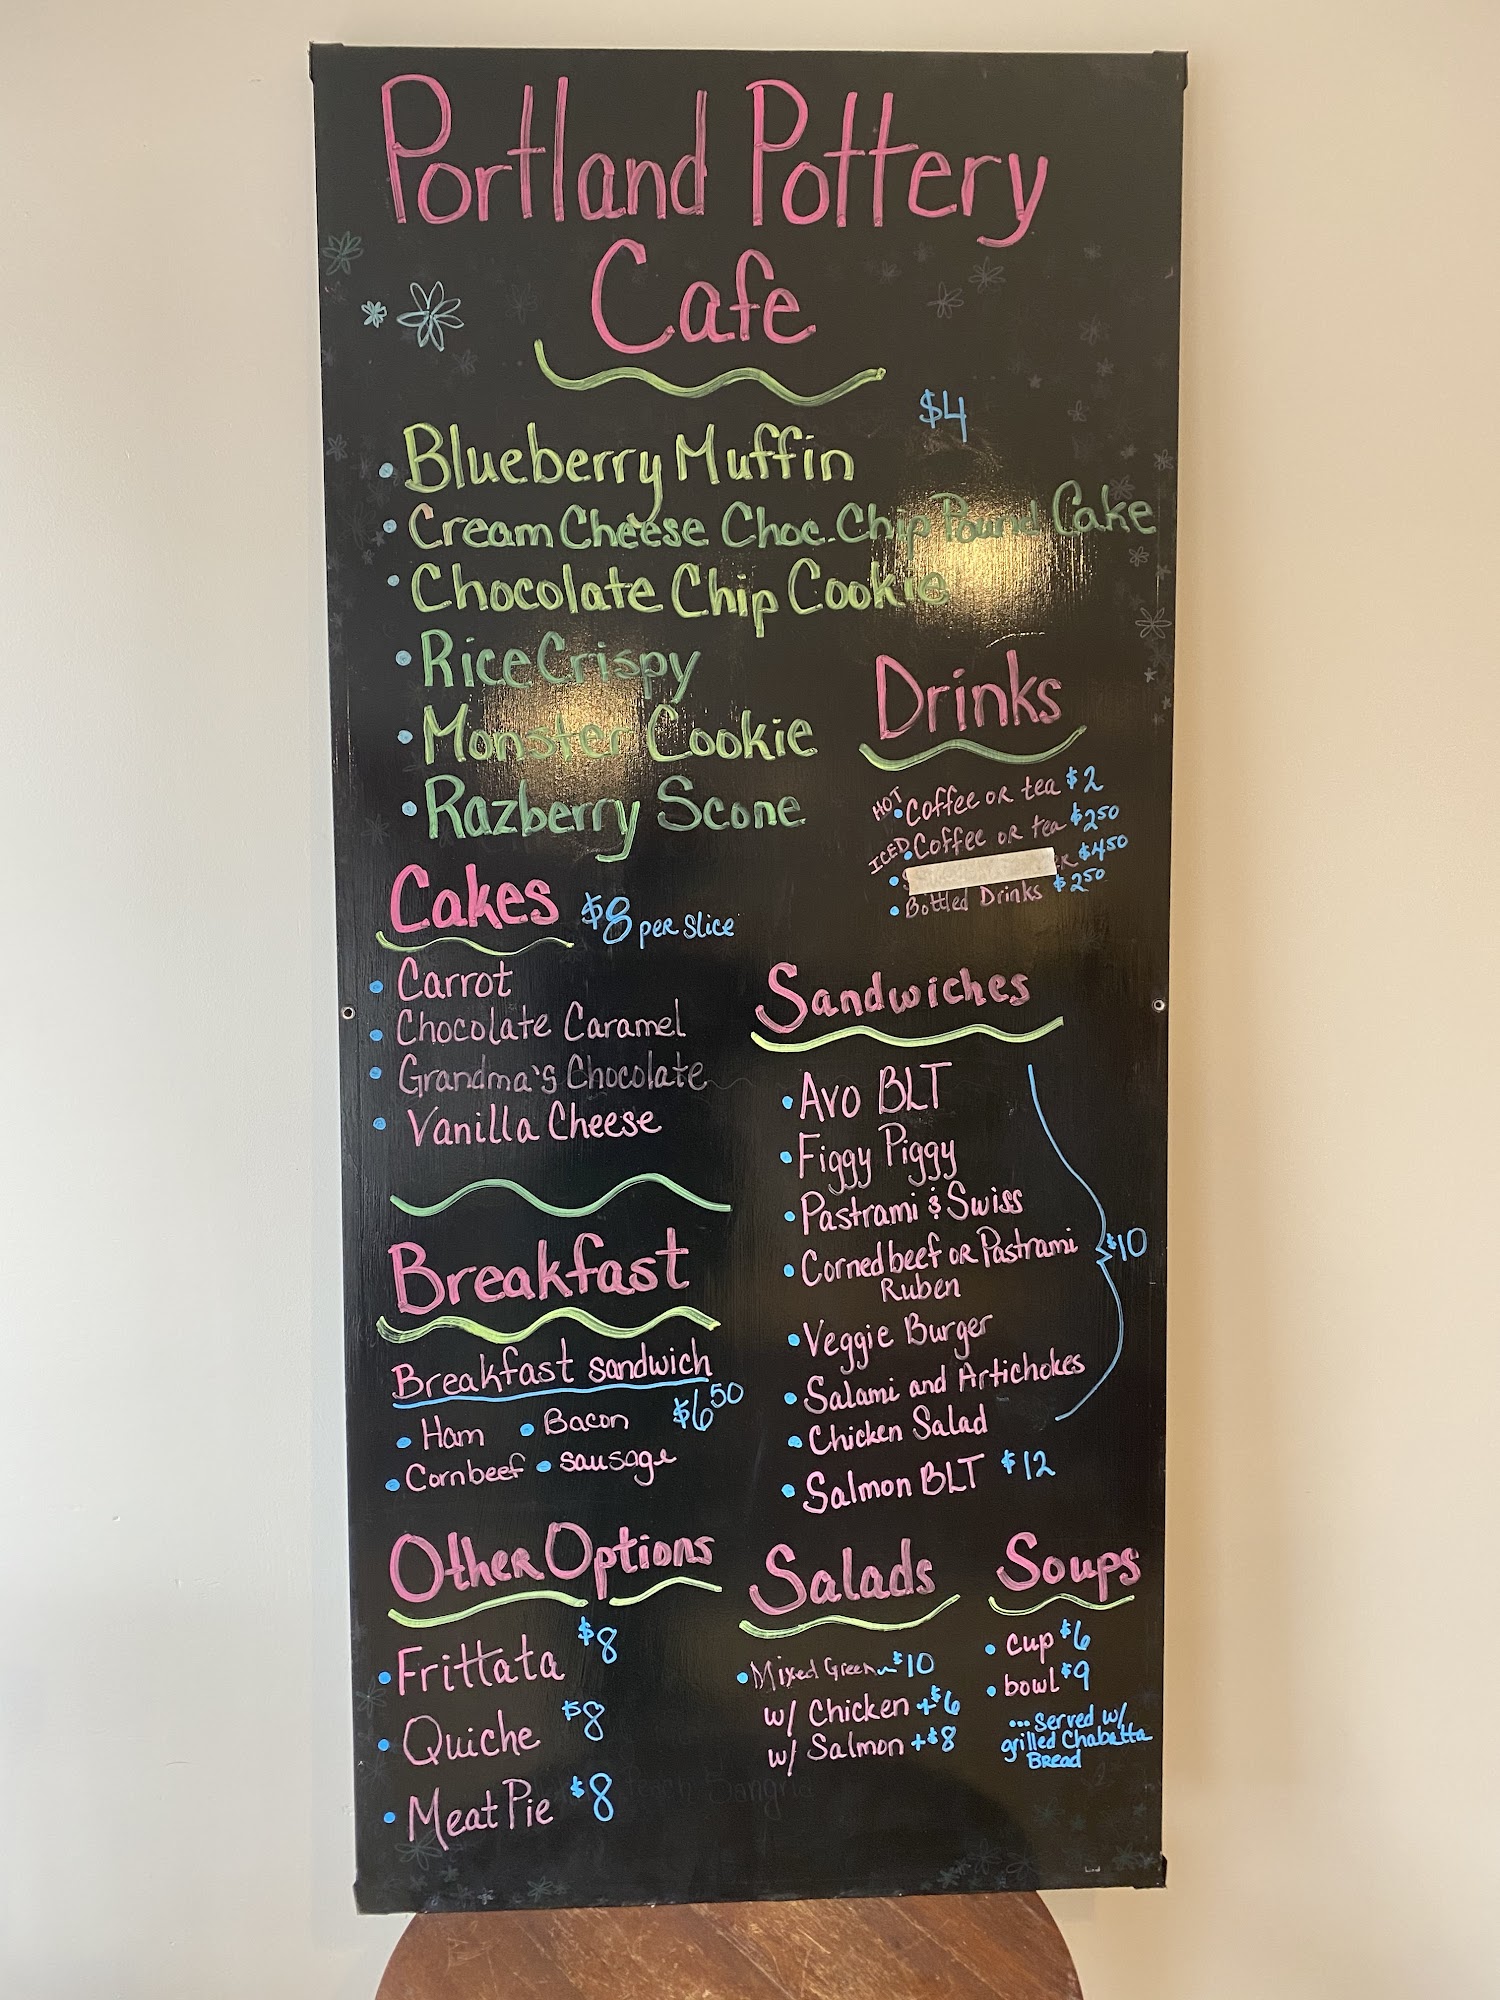 Portland Pottery
Cafe
$4
• Blueberry Muffin
• Cream Cheese Choc. Chip Pound Cake
• Chocolate Chip Cookie
• Rice Crispy
• Monster Cookie
• Razberry Scone
Drinks
HOT • Coffee or tea $2
ICED • Coffee or tea $2.50
• $4.50
• Bottled Drinks $2.50
Cakes $8 per slice
• Carrot
• Chocolate Caramel
• Grandma's Chocolate
• Vanilla Cheese
Sandwiches
• Avo BLT
• Figgy Piggy
• Pastrami & Swiss
• Corned beef or Pastrami
Ruben
• Veggie Burger
• Salami and Artichokes
• Chicken Salad
$10
• Salmon BLT $12
Breakfast
Breakfast sandwich
$6.50
• Ham • Bacon
• Cornbeef • sausage
Other Options
• Frittata $8
• Quiche $8
• Meat Pie $8
Salads
• Mixed Green $10
w/ Chicken +$6
w/ Salmon +$8
Soups
• cup $6
• bowl $9
...Served w/
grilled Chabatta
Bread
Peach Sangria